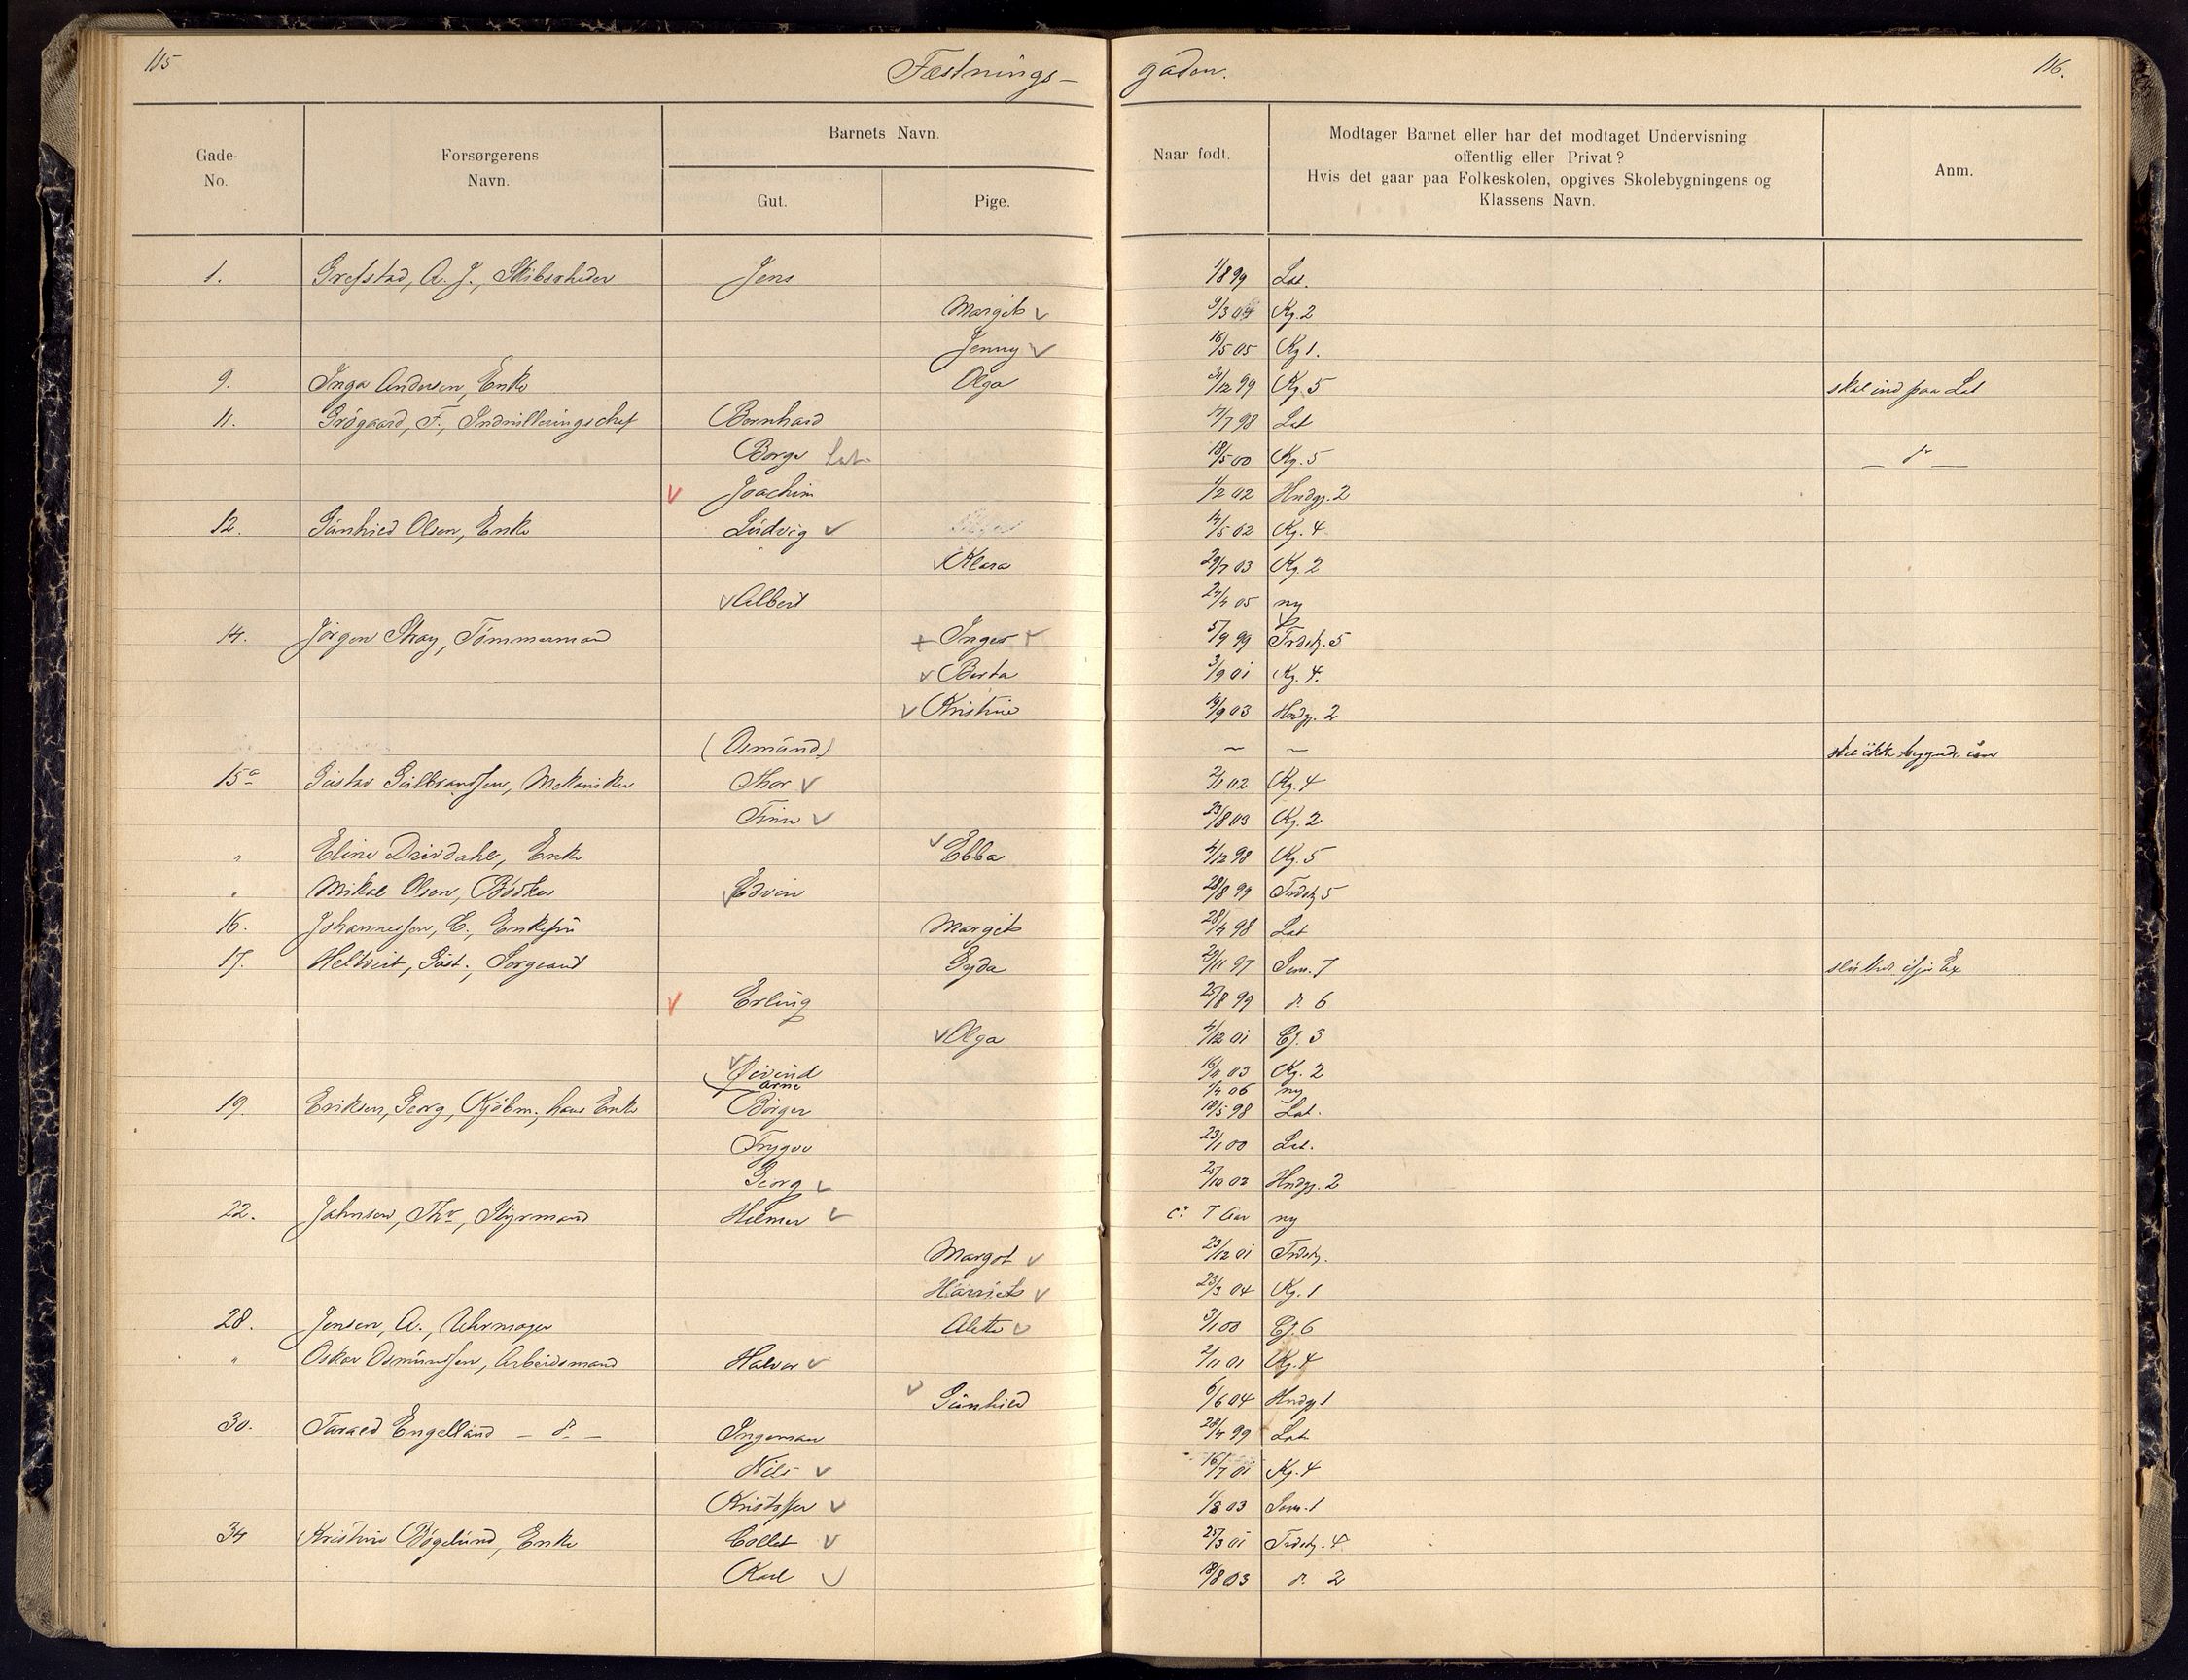 115 Fæstnings- gaden. 116.
Gade-
No.
Forsørgerens
Navn.
Barnets Navn.
Gut.
Pige.
Naar født.
Modtager Barnet eller har det modtaget Undervisning
offentlig eller Privat?
Hvis det gaar paa Folkeskolen, opgives Skolebygningens og
Klassens Navn.
Anm.
1. Grefstad, A. J., Skibsrheder Jens 1/8 99 Lat.
Margit v 9/3 04 Kg. 2
Jenny v 16/5 05 Kg 1.
9. Inga Andersen, Enke Olga 31/12 99 Kg. 5 skal ind paa Lat
11. Grögaard, F., Indrulleringschef Bernhard 17/7 98 Lat
Borge Lat. 18/5 00 Kg. 5 — do —
v Joachim 1/2 02 Hndgs. 2
12. Gunhild Olsen, Enke Ludvig v 14/5 02 Kg. 4
v Klara 29/7 03 Kg. 2
v Albert 24/4 05 ny
14. Jörgen Stray, Tömmermand + Inger v 5/9 99 Trdstj. 5
v Berta 3/9 01 Kg. 4.
v Kristine 19/9 03 Hndgs. 2
(Osmund) — — skal ikke begynde iaar
15a Gustav Gulbrandsen, Mekaniker Thor v 2/1 02 Kg. 4
Finn v 23/8 03 Kg. 2
" Eline Drivdahl, Enke v Ebba 4/12 98 Kg. 5
" Mikal Olsen, Bödker v Edvin 28/8 99 Trdstj 5
16. Johannessen, C., Enkefru Margit 28/4 98 Lat
17. Heltveit, Gust., Sergeant Gyda 29/11 97 Sem. 7 slutter
v Erling 25/8 99 do 6
v Olga 4/12 01 Ef. 3
v Øivind 16/11 03 Kg. 2
Arne 1/4 06 ny
19. Eriksen, Georg, Kjöbm., hans Enke Börger 18/5 98 Lat.
Trygve 23/1 00 Lat.
Georg v 25/10 02 Hndgs. 2
22. Johnsen, Thv., Styrmand Hilmer v ca 7 Aar ny
Margot v 23/12 01 Trdstj.
Harriets v 23/3 04 Kg. 1
28. Jensen, A., Uhrmager Alette v 3/1 00 Ef. 6
" Oskar Osmundsen, Arbeidsmand Halvor v 2/11 01 Kg. 4
v Gunhild 6/6 04 Hndgs 1
30. Tarald Engelland — do — Ingeman 20/4 99 Lat.
Nils v 16/7 01 Kg. 4
Kristoffer v 1/8 03 Sem. 1
34 Kristine Bögelund, Enke Collet v 25/3 01 Trdstj. 4
Karl v 18/8 03 do 2